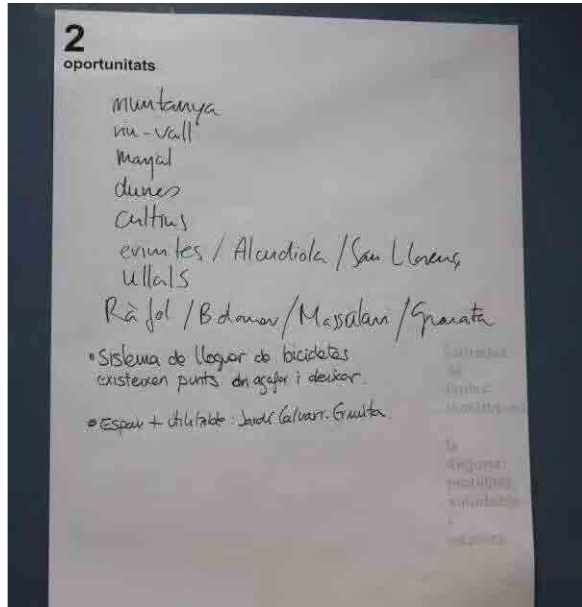 2
oportunitats
muntanya
riu-vall
marjal
dunes
cultius
ermites / Alcudiola / San Llorens
ullals
Ràfol / / Massalari / Granata
• Sistema de lloguer de bicicletes
existeixen punts on agafar i deixar.
• Espais + utilitzats: Jardí Calvari. Ermita